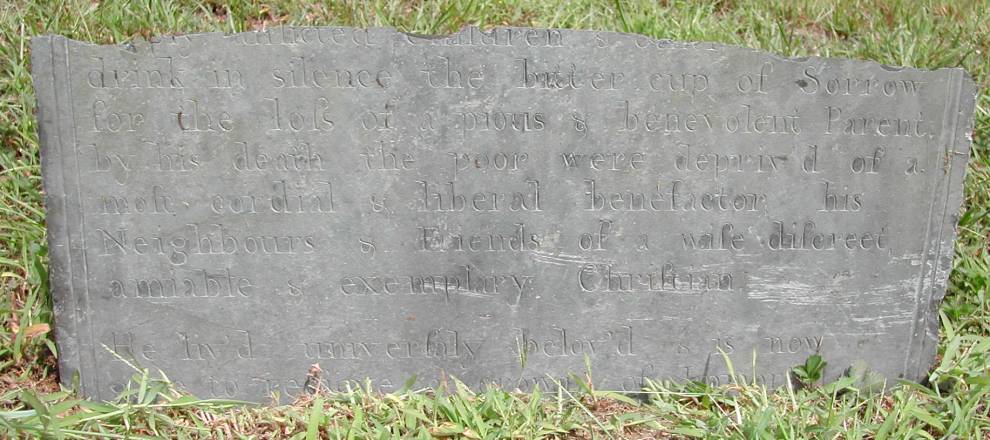 afflicted Children &
drink in silence the bitter cup of Sorrow
for the loſs of a pious & benevolent Parent,
by his death the poor were depriv'd of a
moſt cordial & liberal benefactor, his
Neighbours & Friends of a wiſe diſcreet
amiable & exemplary Chriſtian
He liv'd univerſaly belov'd & is now
to of